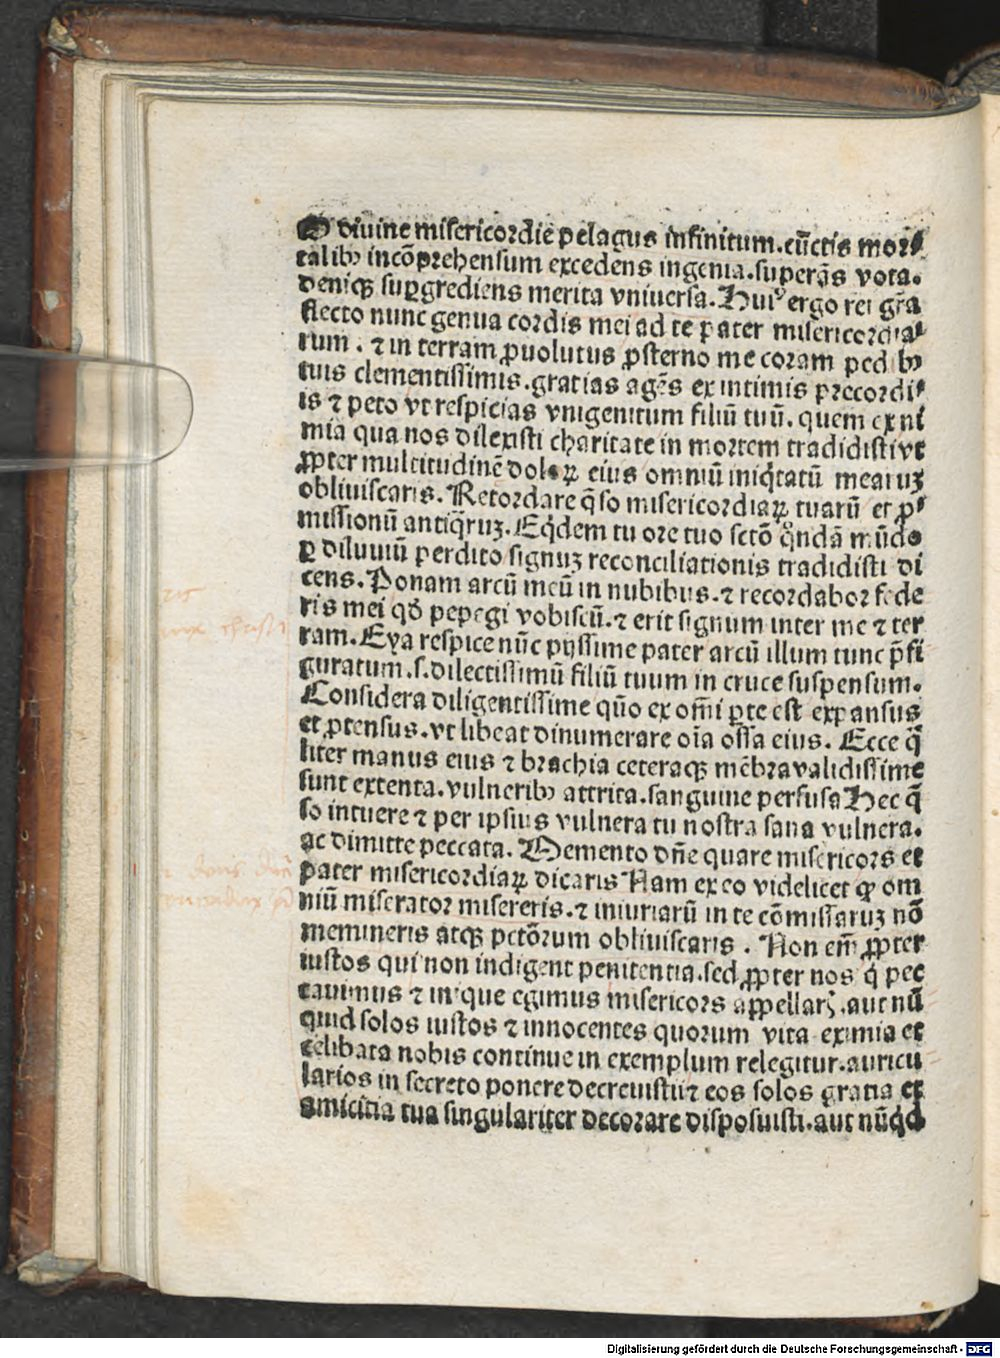 O diuine misericordie pelagus infinitum. cūctis mor⸗
talibꝫ incōprehensum excedens ingenia. superās vota.
deniqꝫ suꝑgrediens merita vniuersa. Huiꝰ ergo rei gr̄a
flecto nunc genua cordis mei ad te pater misericordia⸗
rum. ⁊ in terram ꝓuolutus ꝓsterno me coram pedibꝫ
tuis clementissimis. gratias agēs ex intimis precordi⸗
is ⁊ peto vt respicias vnigenitum filiū tuū. quem ex ni
mia qua nos dilexisti charitate in mortem tradidisti vt
ꝓpter multitudinē doloꝝ eius omniū iniq̇tatū mearuꝫ
obliuiscaris. Retordare q̄so misericordiaꝝ tuarū et ꝓ⸗
missionū antiq̄ruꝫ. Eq̇dem tu ore tuo sctō q̊ndā mūdo
ꝑ diluuiū perdito signuꝫ reconciliationis tradidisti di
cens. Ponam arcū meū in nubibus. ⁊ recordabor fede
ris mei qd̄ pepegi vobiscū. ⁊ erit signum inter me ⁊ ter
ram. Eya respice nūc pijssime pater arcū illum tunc p̄fi
guratum. s. dilectissimū filiū tuum in cruce suspensum.
Considera diligentissime quō ex om̄i ꝑte est expansus
et ꝓtensus. vt libeat dinumerare oīa ossa eius. Ecce q̄
liter manus eius ⁊ brachia ceteraqꝫ mēbra validissime
sunt extenta. vulneribꝫ attrita. sanguine perfusa Hec q̄
so intuere ⁊ per ipsius vulnera tu nostra sana vulnera.
ac dimitte peccata. Memento dn̄e quare misericors et
pater misericordiaꝝ dicaris Nam ex eo videlicet ꝙ om
niū miserator misereris. ⁊ iniuriarū in te cōmissaruꝫ nō
memineris atqꝫ pctōrum obliuiscaris. Non em̄ ꝓpter
iustos qui non indigent penitentia. sed ꝓpter nos q̇ pec
cauimus ⁊ inique egimus misericors appellarꝭ. aut nū
quid solos iustos ⁊ innocentes quorum vita eximia et
celibata nobis continue in exemplum relegitur. auricu
larios in secreto ponere decreuisti ⁊ eos solos gratia et
amicitia tua singulariter decorare disposuisti. aut nūq̇d
Digitalisierung gefördert durch die Deutsche Forschungsgemeinschaft - DFG